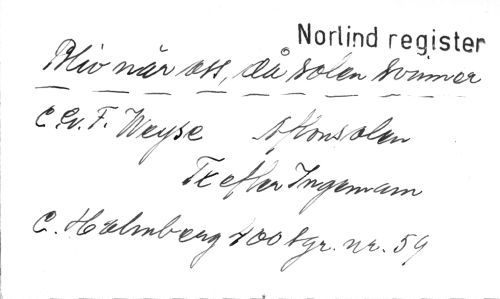 Norlind register
Bliv när oss, då solen svinner
C. E. F. Weyse Aftonsolen
Tx efter Ingemann
C. Holmberg 400 sgr. nr. 59